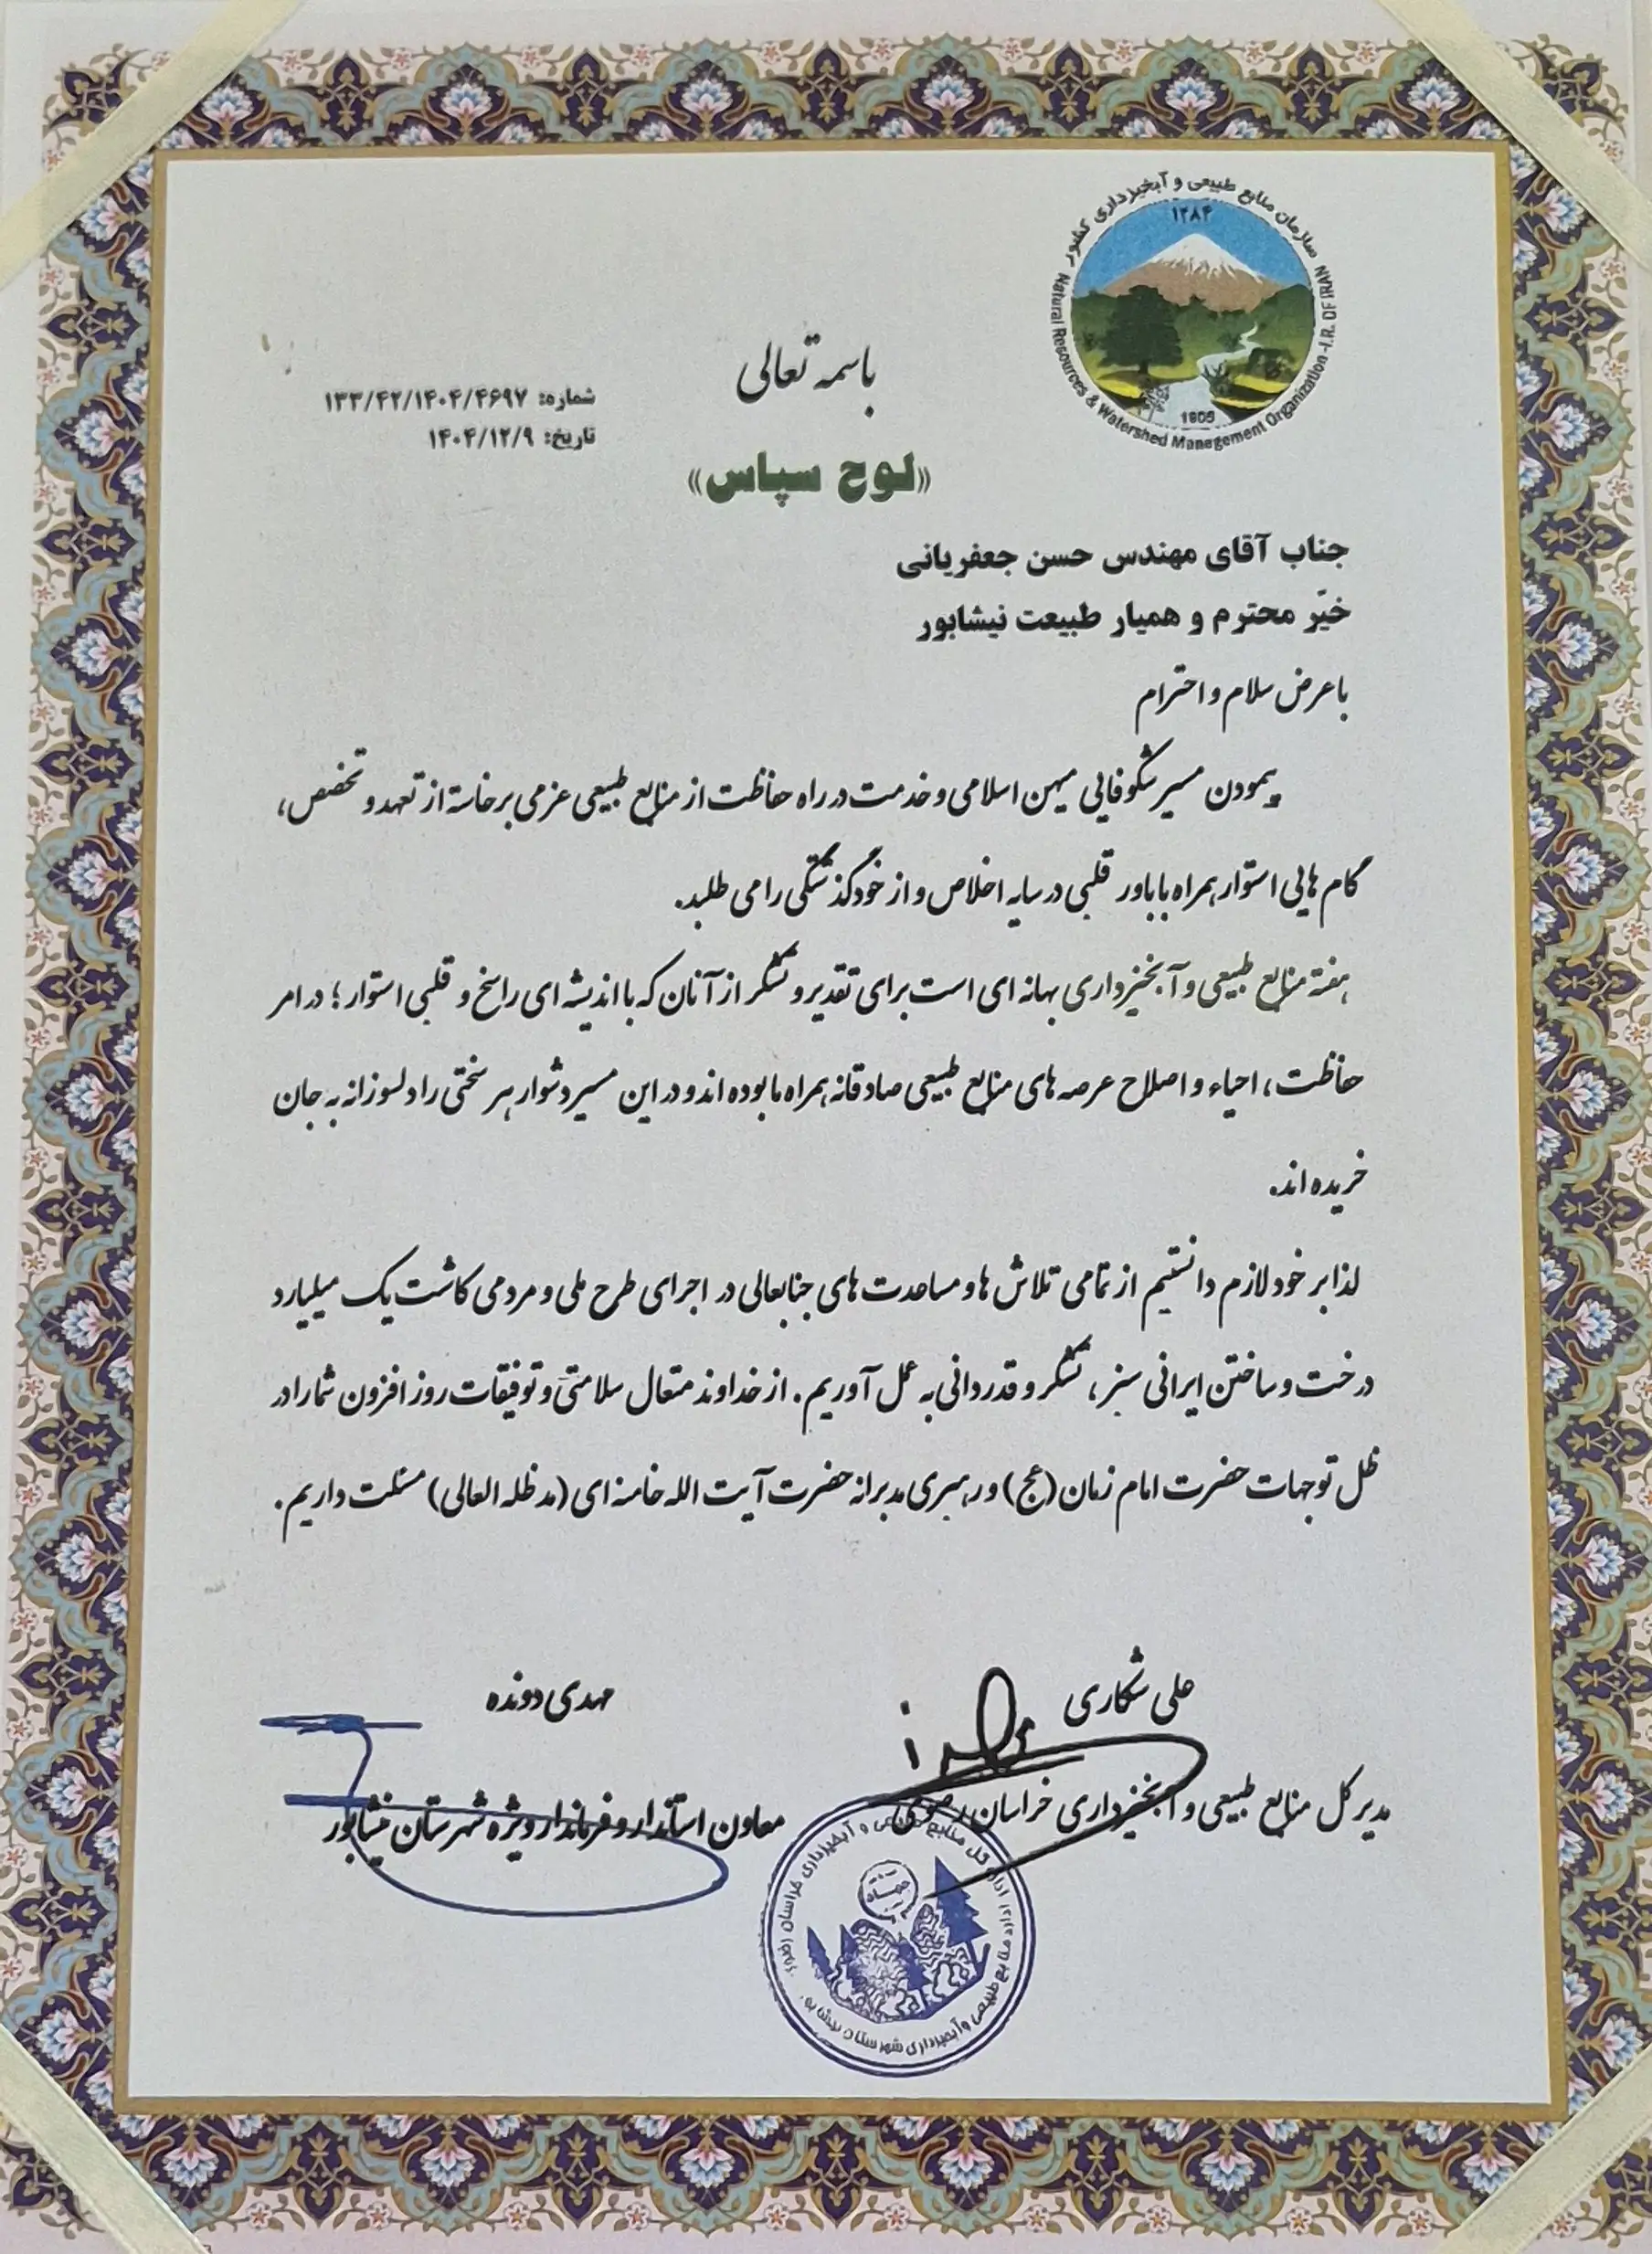 سازمان منابع طبیعی و آبخیزداری کشور
۱۲۸۴
1905
Natural Resources & Watershed Management Organization -I.R. OF IRAN
باسمه تعالی
شماره: ۱۳۳/۴۲/۱۴۰۴/۴۶۹۷
تاریخ: ۱۴۰۴/۱۲/۹
«لوح سپاس»
جناب آقای مهندس حسن جعفریانی
خیّر محترم و همیار طبیعت نیشابور
با عرض سلام و احترام
پیمودن مسیر شکوفائی میهن اسلامی و خدمت در راه حفاظت از منابع طبیعی عزمی برخاسته از تعهد و تخصص،
گام هایی استوار همراه با باور قلبی در سایه اخلاص و از خودگذشتگی را می طلبد.
هفته منابع طبیعی و آبخیزداری بهانه ای است برای تقدیر و تشکر از آنان که با اندیشه ای راسخ و قلبی استوار؛ در امر
حفاظت، احیاء و اصلاح عرصه های منابع طبیعی صادقانه همراه ما بوده اند و در این مسیر دشوار هر سختی را دلسوزانه به جان
خریده اند.
لذا بر خود لازم دانستیم از تمامی تلاش ها و مساعدت های جنابعالی در اجرای طرح ملی و مردمی کاشت یک میلیارد
درخت و ساختن ایرانی سبز، تشکر و قدردانی به عمل آوریم. از خداوند متعال سلامتی و توفیقات روز افزون شما را در
ظل توجهات حضرت امام زمان (عج) و رهبری مدبرانه حضرت آیت الله خامنه ای (مدظله العالی) مسئلت داریم.
علی شکاری
مدیر کل منابع طبیعی و آبخیزداری خراسان رضوی
مهدی دونده
معاون استاندار و فرماندار ویژه شهرستان نیشابور
اداره کل منابع طبیعی و آبخیزداری خراسان رضوی
اداره منابع طبیعی و آبخیزداری شهرستان نیشابور